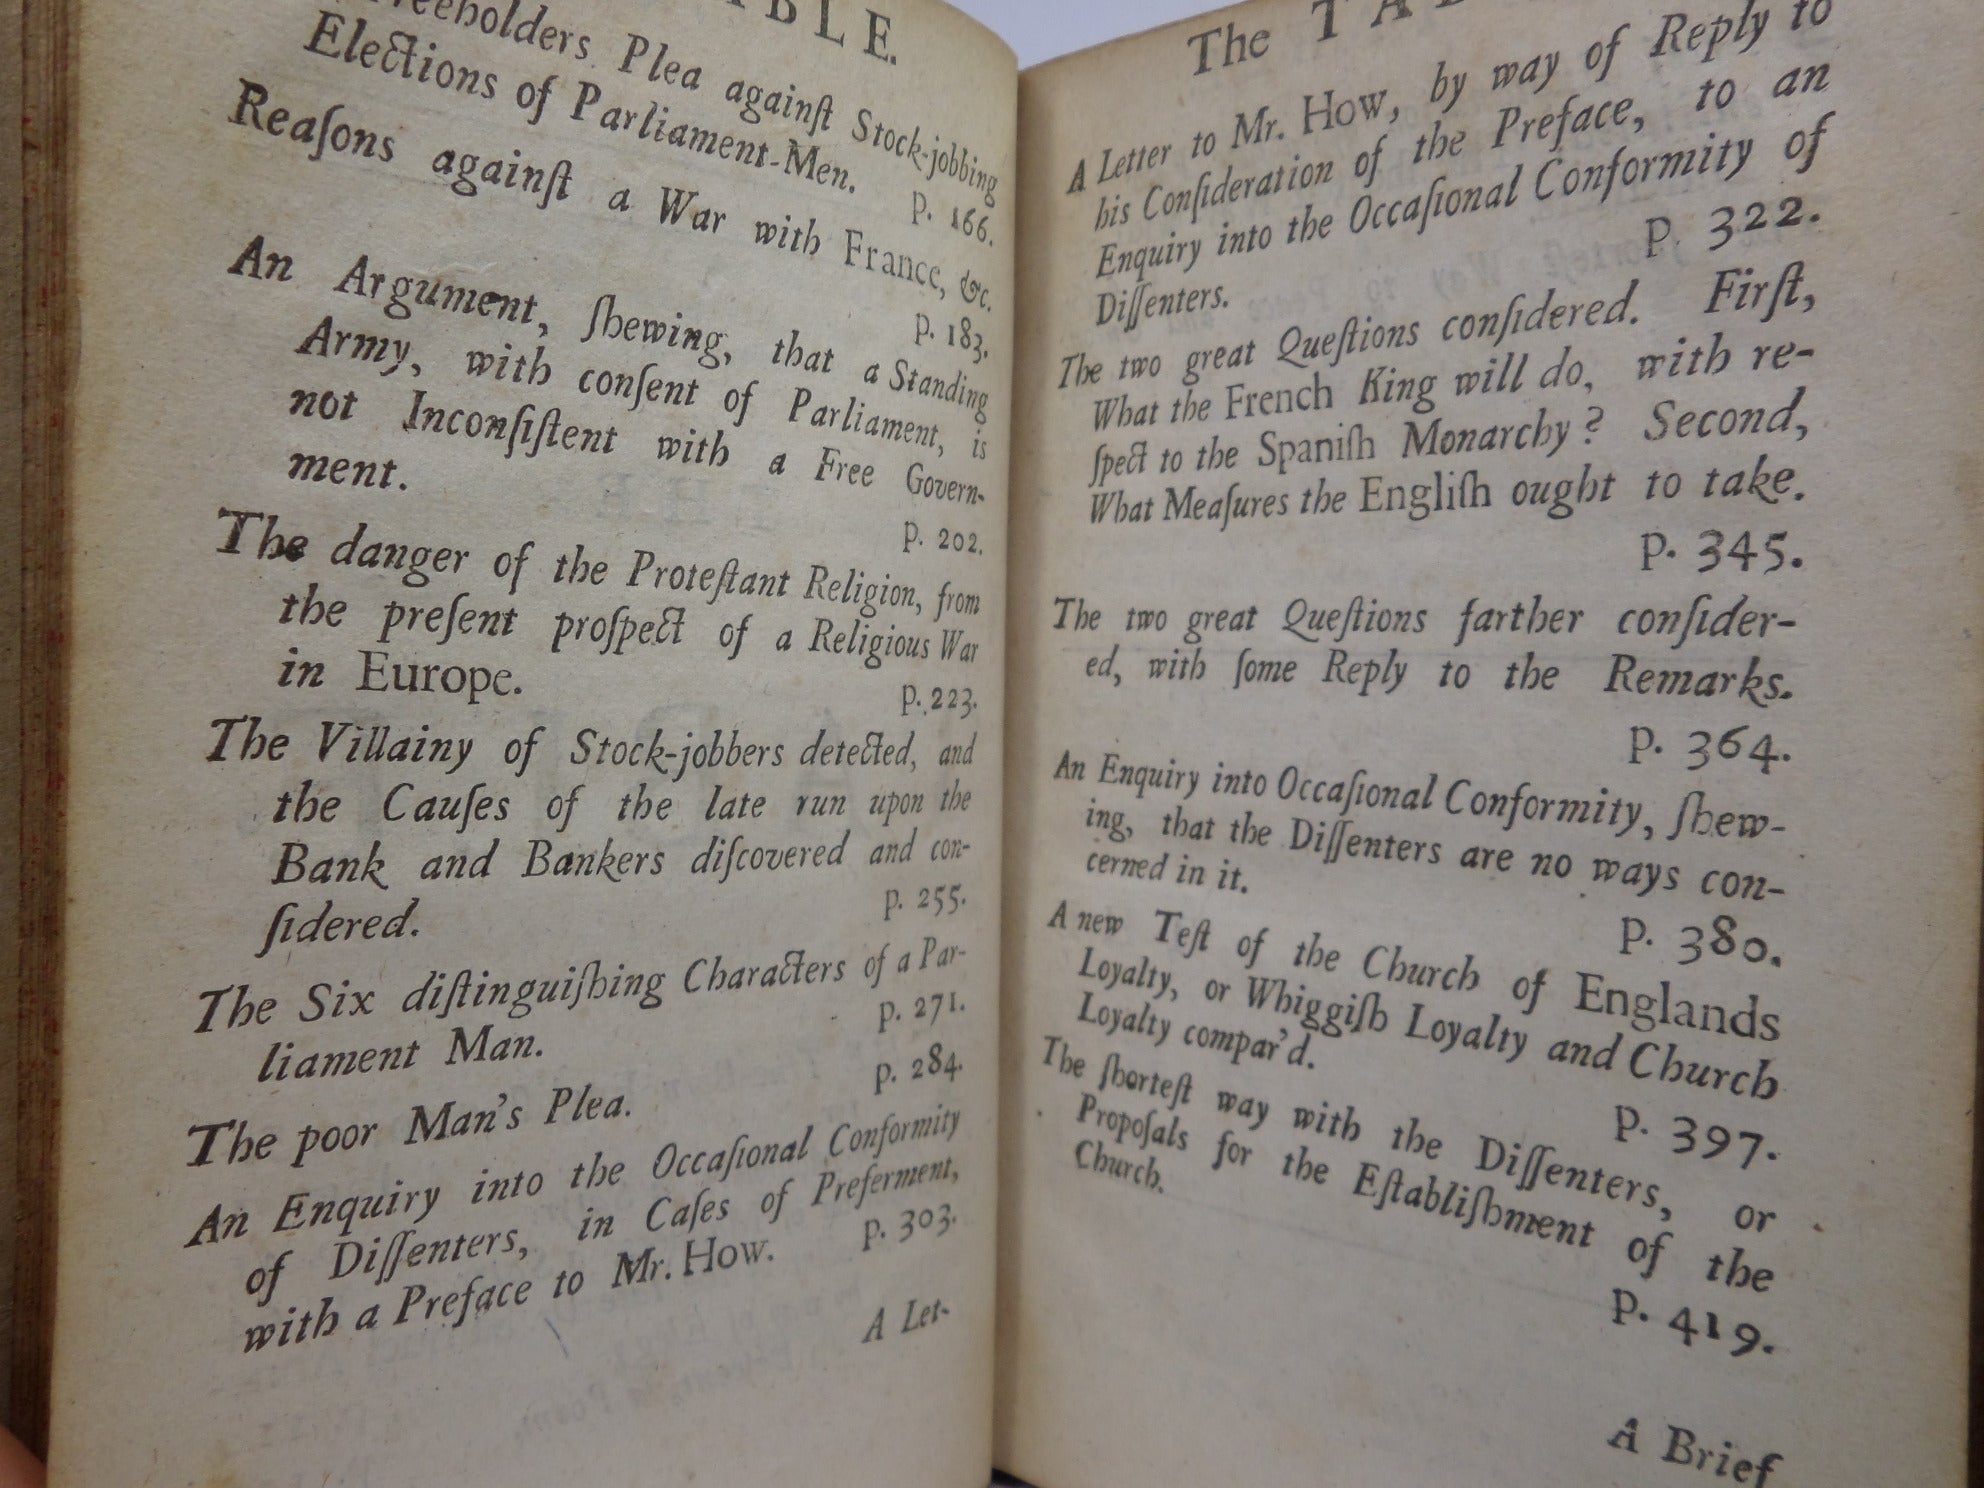 BLE.
Freeholders Plea against Stock-jobbing
Elections of Parliament-Men. p. 166.
Reaſons against a War with France, &c.
p. 183.
An Argument, ſhewing, that a Standing
Army, with conſent of Parliament, is
not Inconſiſtent with a Free Govern-
ment. p. 202.
The danger of the Proteſtant Religion, from
the preſent proſpect of a Religious War
in Europe. p. 223.
The Villainy of Stock-jobbers detected, and
the Cauſes of the late run upon the
Bank and Bankers diſcovered and con-
ſidered. p. 255.
The Six diſtinguiſhing Characters of a Par-
liament Man. p. 271.
The poor Man's Plea. p. 284.
An Enquiry into the Occaſional Conformity
of Diſſenters, in Caſes of Preferment,
with a Preface to Mr. How. p. 303.
A Let-
The TAB
A Letter to Mr. How, by way of Reply to
his Conſideration of the Preface, to an
Enquiry into the Occaſional Conformity of
Diſſenters. p. 322.
The two great Queſtions conſidered. Firſt,
What the French King will do, with re-
ſpect to the Spaniſh Monarchy? Second,
What Meaſures the Engliſh ought to take.
p. 345.
The two great Queſtions farther conſider-
ed, with ſome Reply to the Remarks.
p. 364.
An Enquiry into Occaſional Conformity, ſhew-
ing, that the Diſſenters are no ways con-
cerned in it. p. 380.
A new Teſt of the Church of Englands
Loyalty, or Whiggiſh Loyalty and Church
Loyalty compar'd. p. 397.
The ſhorteſt way with the Diſſenters, or
Propoſals for the Eſtabliſhment of the
Church. p. 419.
A Brief